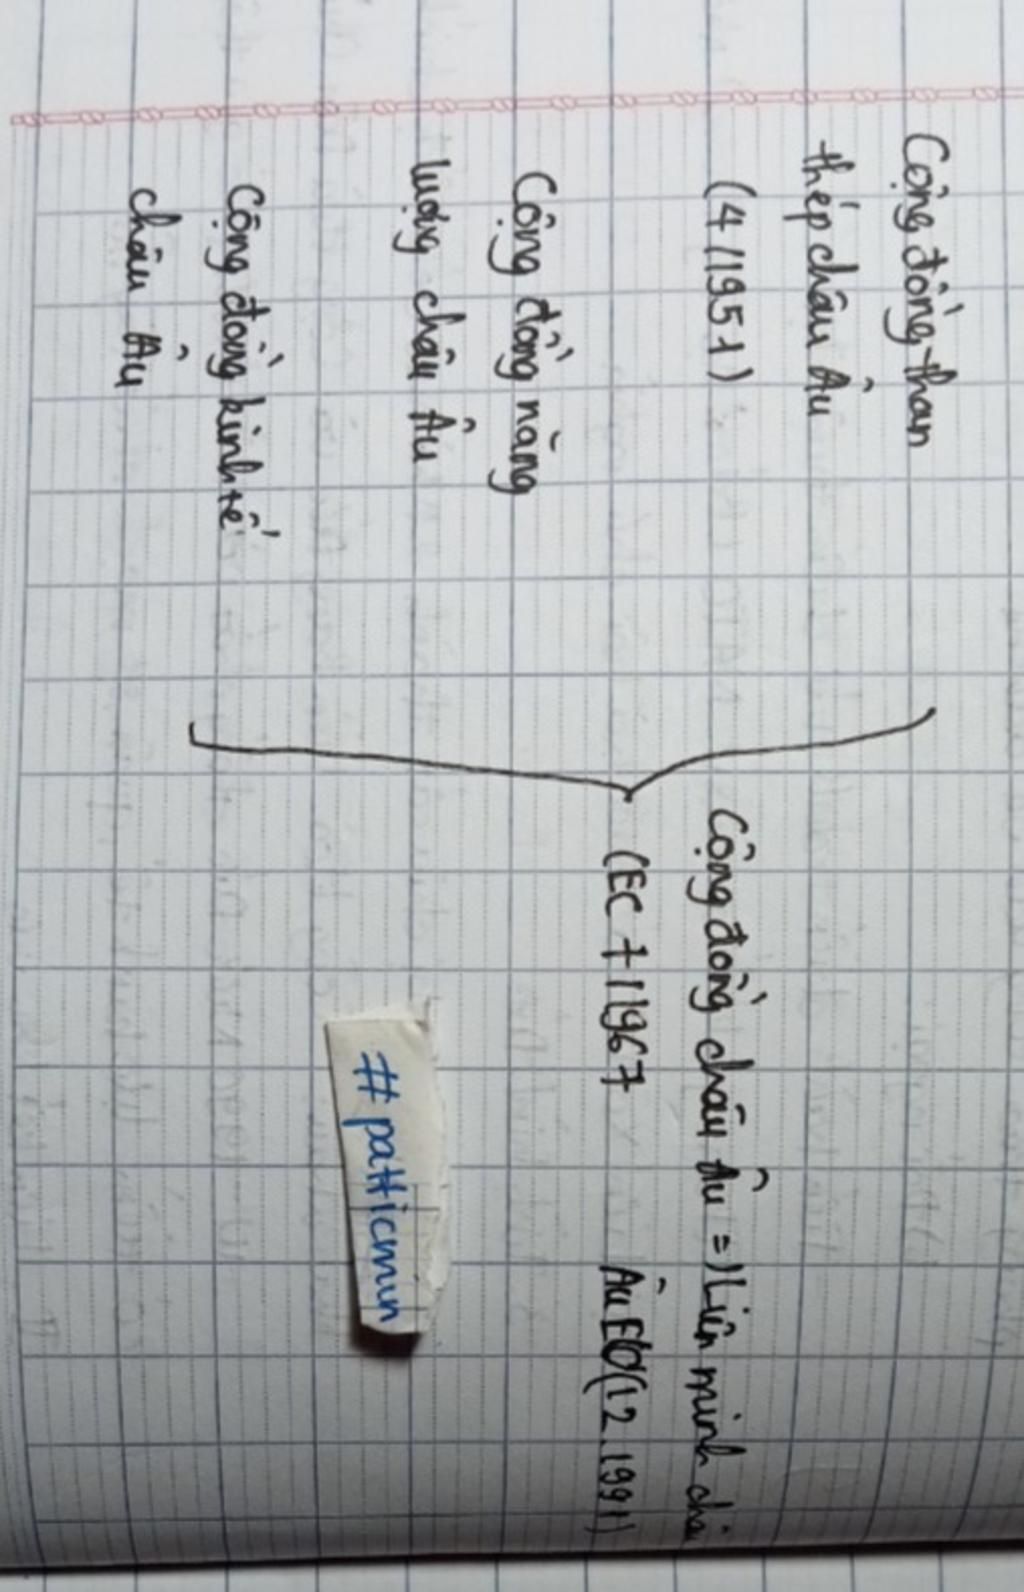 Cộng đồng than
thép châu Âu
(4/1951)
Cộng đồng năng
lượng châu Âu
Cộng đồng kinh tế
châu Âu
Cộng đồng châu Âu => Liên minh châu
(EC 7/1967
Âu EU (12.1991)
#patticmin